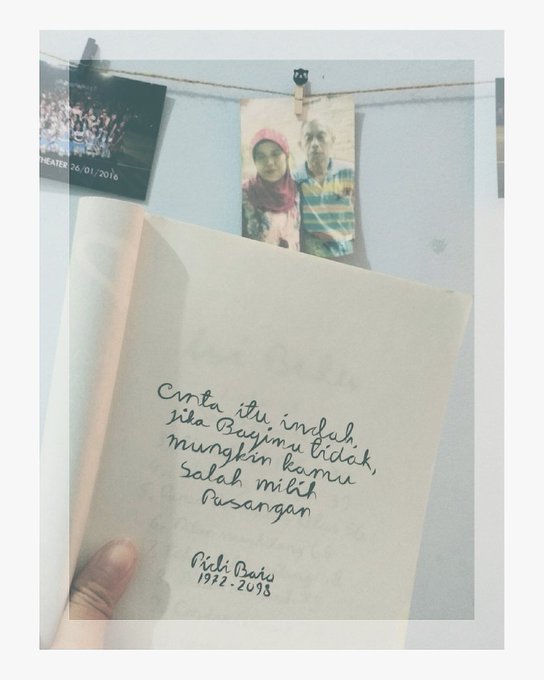 THEATER 26/01/2016
Cinta itu indah,
jika Bagimu tidak,
mungkin kamu
Salah milih
Pasangan
Pidi Baiq
1972-2098